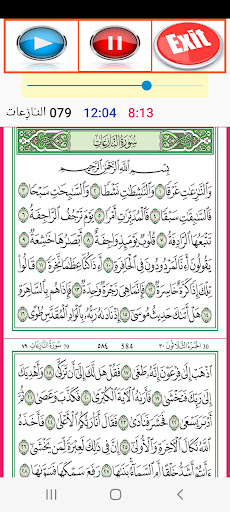 Exit
النازعات 079 12:04 8:13
سُورَةُ النَّازِعَاتِ
بِسْمِ اللَّهِ الرَّحْمَٰنِ الرَّحِيمِ
وَالنَّازِعَاتِ غَرْقًا ١ وَالنَّاشِطَاتِ نَشْطًا ٢ وَالسَّابِحَاتِ سَبْحًا ٣
فَالسَّابِقَاتِ سَبْقًا ٤ فَالْمُدَبِّرَاتِ أَمْرًا ٥ يَوْمَ تَرْجُفُ الرَّاجِفَةُ ٦
تَتْبَعُهَا الرَّادِفَةُ ٧ قُلُوبٌ يَوْمَئِذٍ وَاجِفَةٌ ٨ أَبْصَارُهَا خَاشِعَةٌ ٩
يَقُولُونَ أَإِنَّا لَمَرْدُودُونَ فِي الْحَافِرَةِ ١٠ أَإِذَا كُنَّا عِظَامًا نَّخِرَةً ١١
قَالُوا تِلْكَ إِذًا كَرَّةٌ خَاسِرَةٌ ١٢ فَإِنَّمَا هِيَ زَجْرَةٌ وَاحِدَةٌ ١٣ فَإِذَا هُم بِالسَّاهِرَةِ
١٤ هَلْ أَتَاكَ حَدِيثُ مُوسَىٰ ١٥ إِذْ نَادَاهُ رَبُّهُ بِالْوَادِ الْمُقَدَّسِ طُوًى ١٦
30 الجزء الثلاثون ٣٠ 584 ٥٨٤ 79 سورة النازعات ٧٩
اذْهَبْ إِلَىٰ فِرْعَوْنَ إِنَّهُ طَغَىٰ ١٧ فَقُلْ هَل لَّكَ إِلَىٰ أَن تَزَكَّىٰ ١٨ وَأَهْدِيَكَ
إِلَىٰ رَبِّكَ فَتَخْشَىٰ ١٩ فَأَرَاهُ الْآيَةَ الْكُبْرَىٰ ٢٠ فَكَذَّبَ وَعَصَىٰ ٢١ ثُمَّ
أَدْبَرَ يَسْعَىٰ ٢٢ فَحَشَرَ فَنَادَىٰ ٢٣ فَقَالَ أَنَا رَبُّكُمُ الْأَعْلَىٰ ٢٤ فَأَخَذَهُ
اللَّهُ نَكَالَ الْآخِرَةِ وَالْأُولَىٰ ٢٥ إِنَّ فِي ذَٰلِكَ لَعِبْرَةً لِّمَن يَخْشَىٰ ٢٦
ءَأَنتُمْ أَشَدُّ خَلْقًا أَمِ السَّمَاءُ بَنَاهَا ٢٧ رَفَعَ سَمْكَهَا فَسَوَّاهَا ٢٨